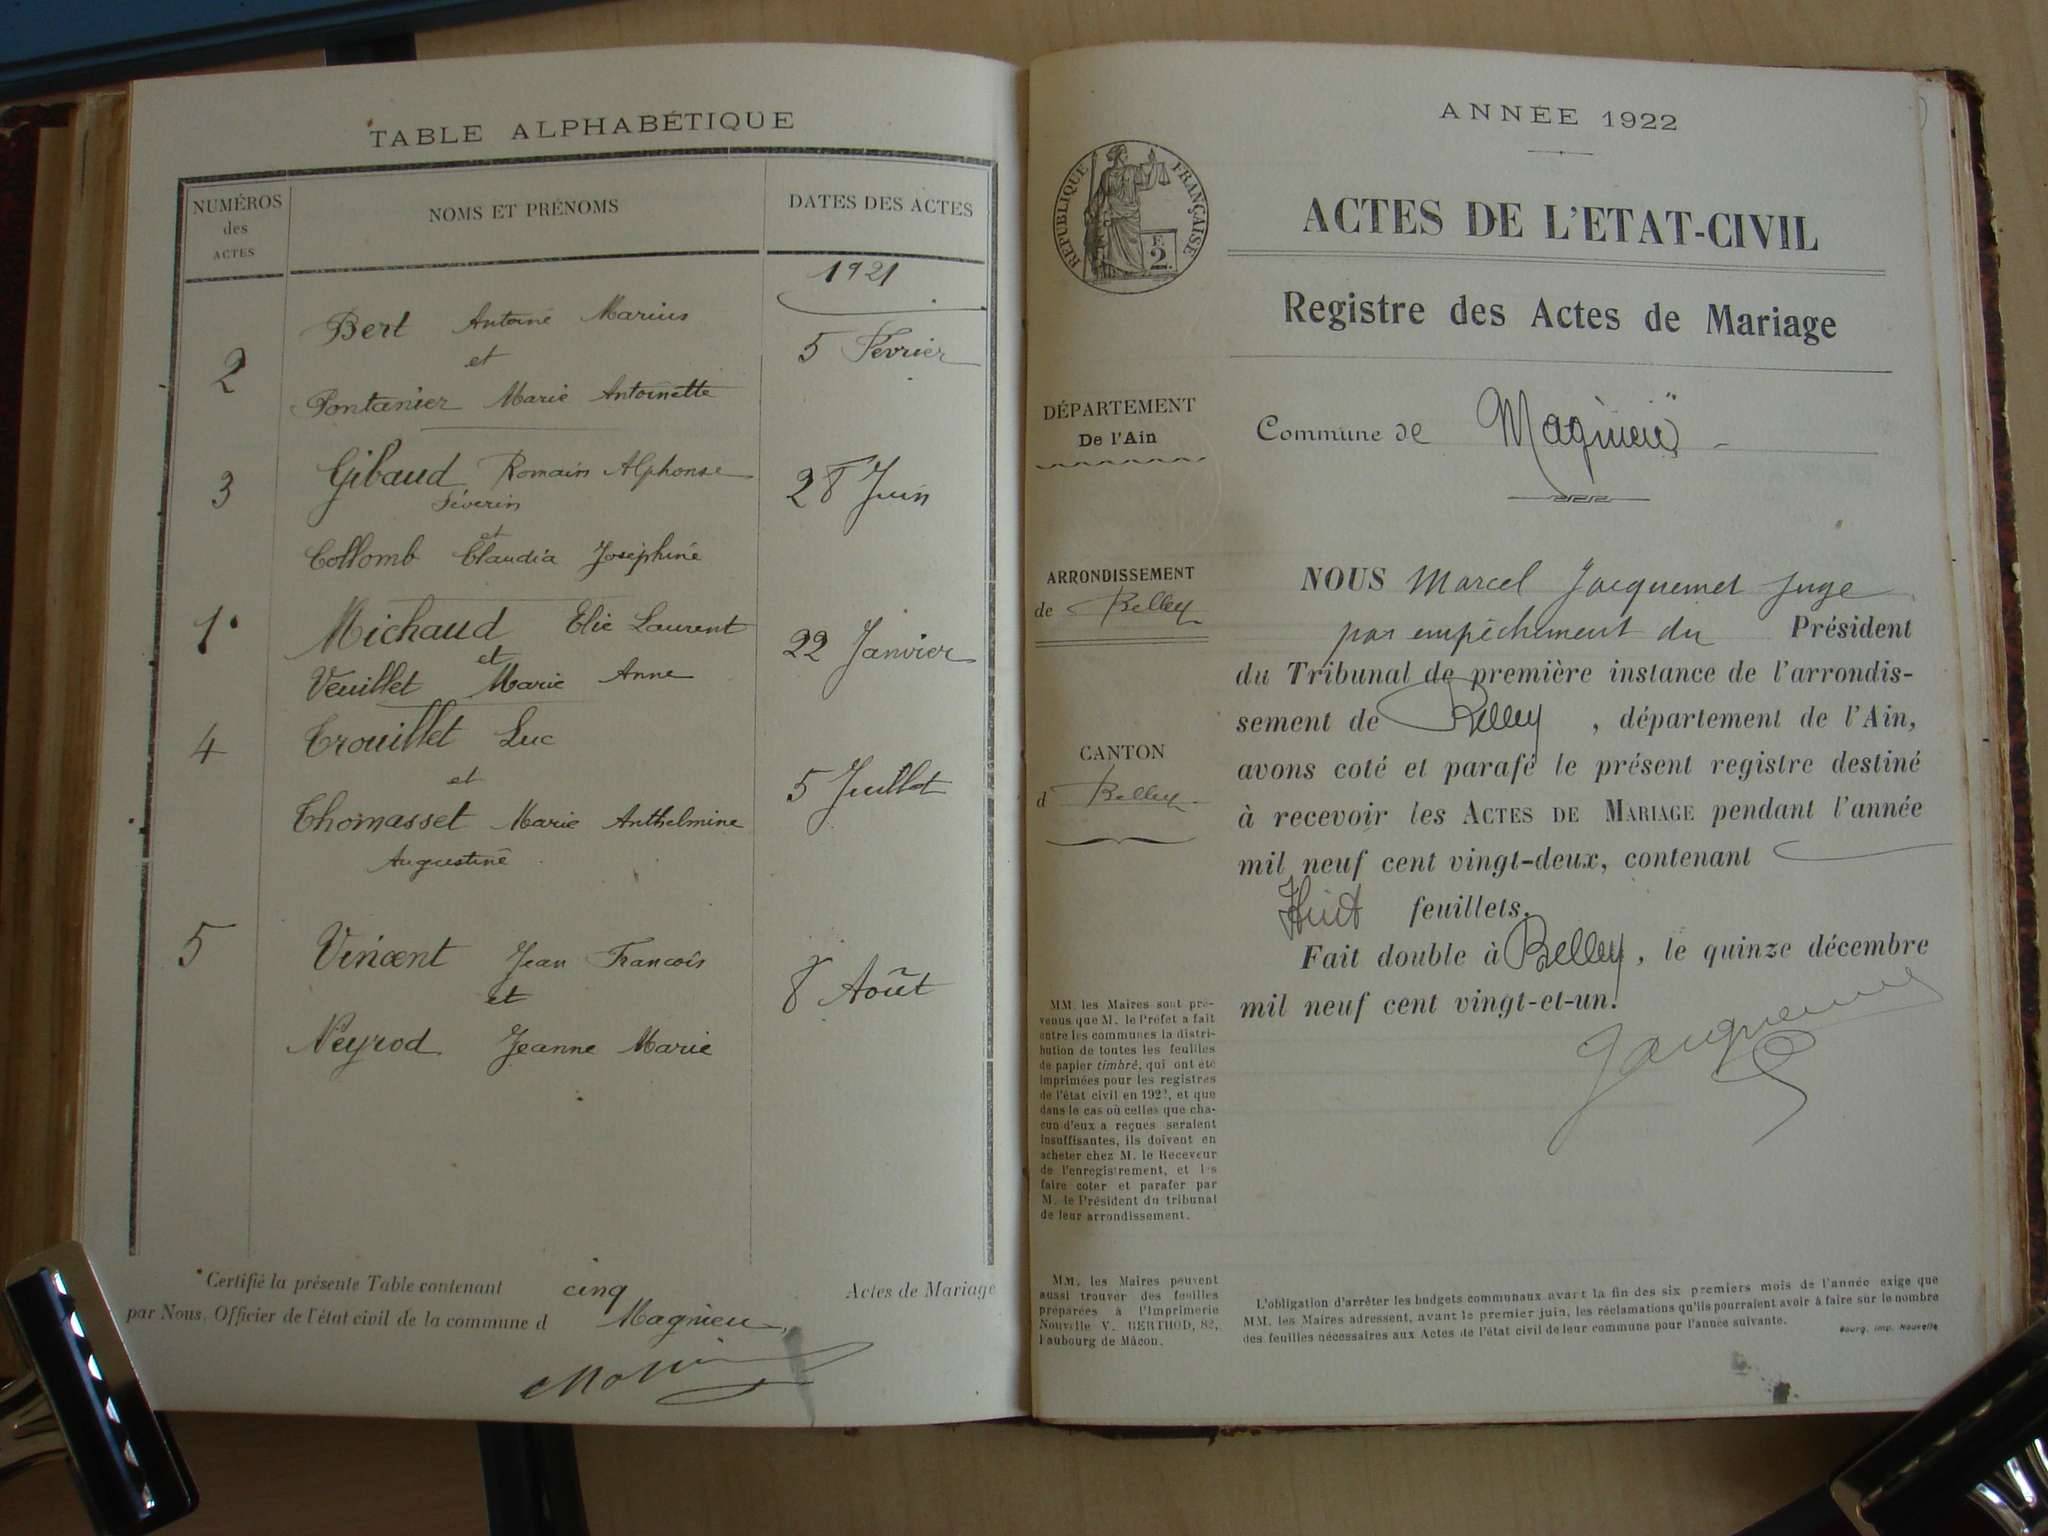 TABLE ALPHABÉTIQUE
NUMÉROS
des
ACTES
NOMS ET PRÉNOMS
DATES DES ACTES
1921
Bert Antoine Marius
2
et
5 Février
Fontanier Marie Antoinette
3
Gibaud Romain Alphonse
Séverin
28 Juin
et
Collomb Claudia Joséphine
1
Michaud Elie Laurent
et
22 Janvier
Veuillet Marie Anne
4
Trouillet Luc
et
5 Juillet
Thomasset Marie Anthelmine
Augustine
5
Vincent Jean François
et
8 Août
Neyrod Jeanne Marie
Certifié la présente Table contenant cinq Actes de Mariage
par Nous, Officier de l'état civil de la commune d Magnieu
ANNÉE 1922
RÉPUBLIQUE FRANÇAISE
F.
2.
ACTES DE L'ETAT-CIVIL
Registre des Actes de Mariage
DÉPARTEMENT
De l'Ain
Commune de Magnieu
ARRONDISSEMENT
de Belley
CANTON
d Belley
NOUS Marcel Jacquemet Juge
par empêchement du Président
du Tribunal de première instance de l'arrondis-
sement de Belley, département de l'Ain,
avons coté et parafé le présent registre destiné
à recevoir les ACTES DE MARIAGE pendant l'année
mil neuf cent vingt-deux, contenant
Huit feuillets.
Fait double à Belley, le quinze décembre
mil neuf cent vingt-et-un.
Jacquemet
MM. les Maires sont pré-
venus que M. le Préfet a fait
entre les communes la distri-
bution de toutes les feuilles
de papier timbré, qui ont été
imprimées pour les registres
de l'état civil en 1922, et que
dans le cas où celles que cha-
cun d'eux a reçues seraient
insuffisantes, ils doivent en
acheter chez M. le Receveur
de l'enregistrement, et les
faire coter et parafer par
M. le Président du tribunal
de leur arrondissement.
MM. les Maires peuvent
aussi trouver des feuilles
préparées à l'Imprimerie
Nouvelle V. BERTHOD, 82,
faubourg de Mâcon.
L'obligation d'arrêter les budgets communaux avant la fin des six premiers mois de l'année exige que
MM. les Maires adressent, avant le premier juin, les réclamations qu'ils pourraient avoir à faire sur le nombre
des feuilles nécessaires aux Actes de l'état civil de leur commune pour l'année suivante.
Bourg. Imp. Nouvelle